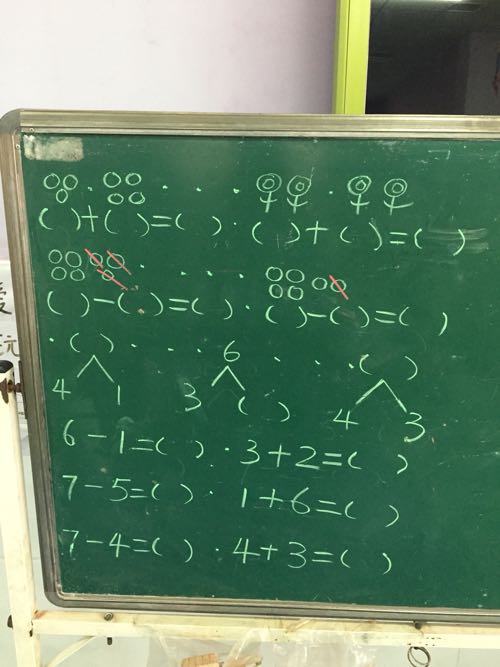 ( )+( )=( ) · ( )+( )=( )
( )-( )=( ) · ( )-( )=( )
( ) 6 ( )
4 1 3 ( ) 4 3
6-1=( ) · 3+2=( )
7-5=( ) · 1+6=( )
7-4=( ) · 4+3=( )
爱
玩